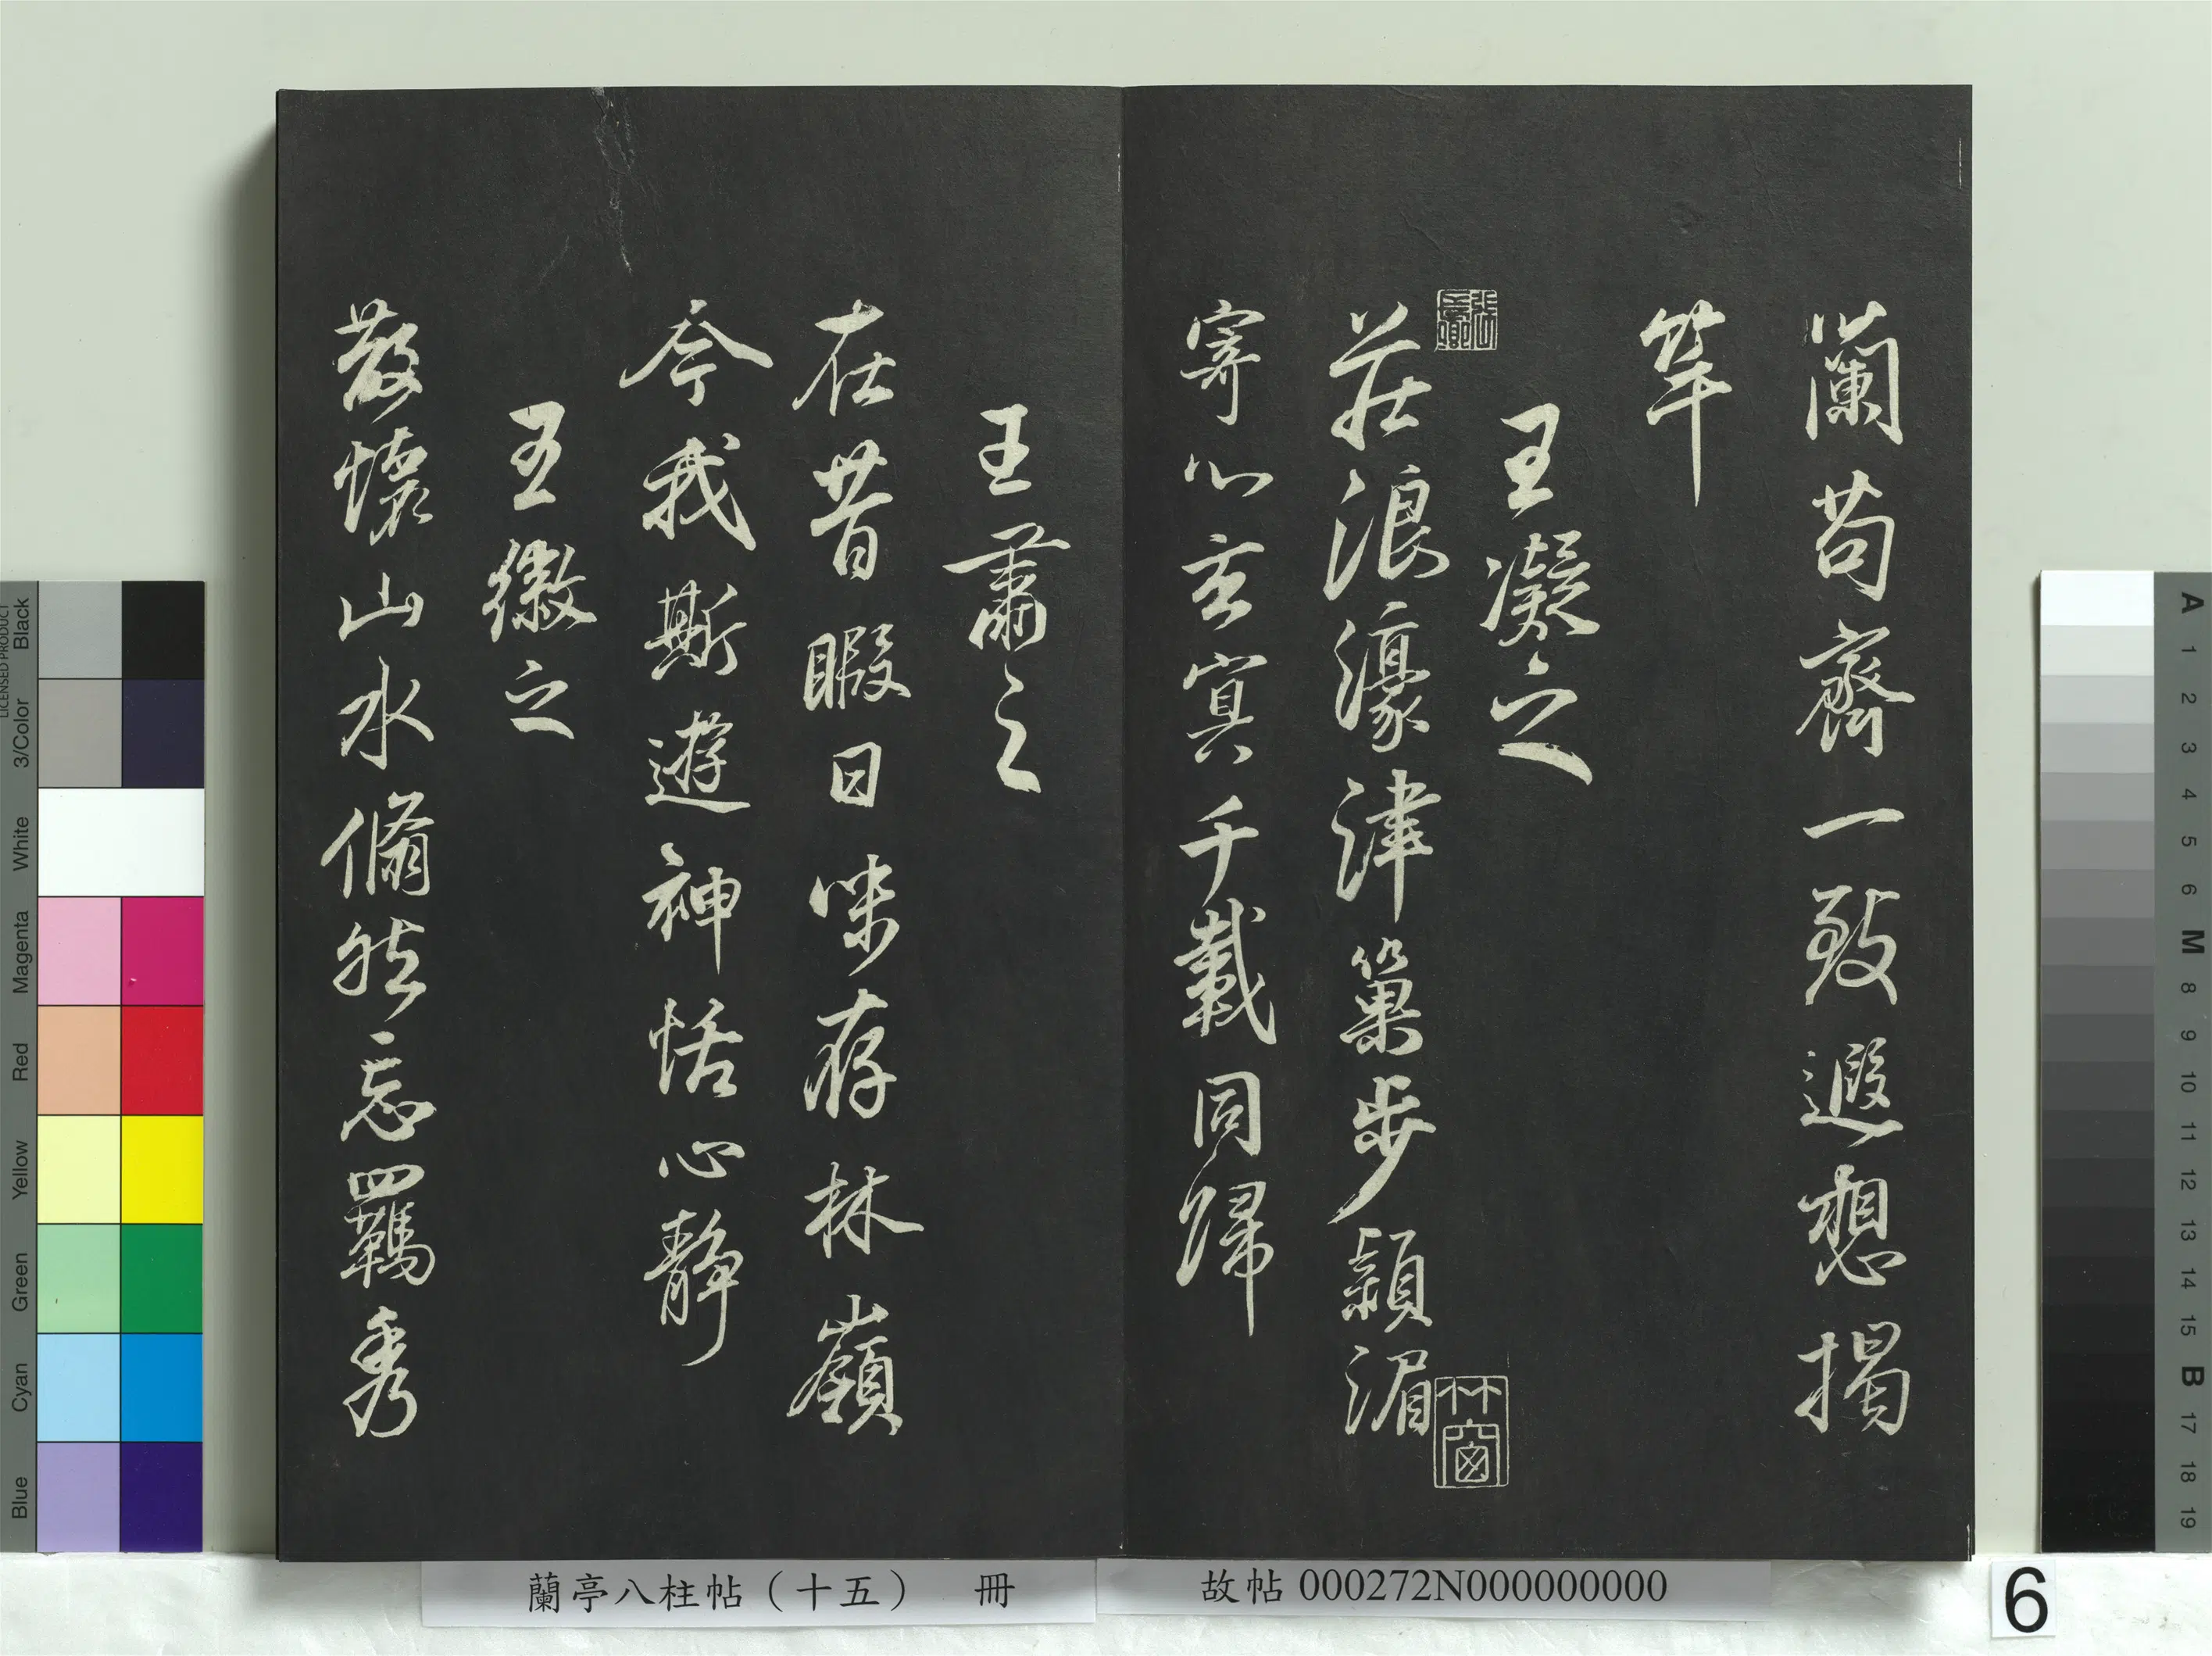 蘭苟齊一致遐想揭
竿
王凝之
莊浪濠津巢步潁湄
寄心玄冥千載同歸
王肅之
在昔暇日味存林嶺
今我斯遊神恬心静
王徽之
散懷山水翛然忘羈秀
竹窗
蘭亭八柱帖（十五） 冊
故帖 000272N000000000
6
LICENSED PRODUCT
Black
3/Color
White
Magenta
Red
Yellow
Green
Cyan
Blue
A
1
2
3
4
5
6
M
8
9
10
11
12
13
14
15
B
17
18
19